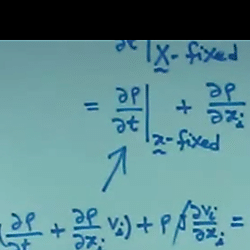 ∂t |X - fixed
= ∂ρ/∂t |x - fixed + ∂ρ/∂xᵢ
(∂ρ/∂t + ∂ρ/∂xᵢ vᵢ) + ρ ∂vᵢ/∂xᵢ =